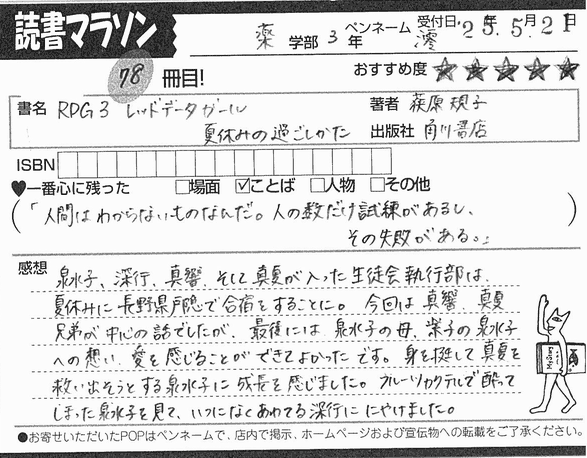 読書マラソン
薬 学部 3 年 ペンネーム 澪 受付日・25年5月21日
78 冊目! おすすめ度 ★★★★★
書名 RDG3 レッドデータガール 著者 萩原規子
夏休みの過ごしかた 出版社 角川書店
ISBN
♥一番心に残った □場面 ☑ことば □人物 □その他
(「人間はわからないものなんだ。人の数だけ試練があるし、
その失敗がある。」)
感想 泉水子、深行、真響、そして真夏が入った生徒会執行部は、
夏休みに長野県戸隠で合宿をすることに。今回は真響、真夏
兄弟が中心の話でしたが、最後には泉水子の母、紫子の泉水子
への想い、愛を感じることができてよかったです。身を挺して真夏を
救い出そうとする泉水子に成長を感じました。フルーツカクテルで酔って
しまった泉水子を見て、いつになくあわてる深行ににやけました。
●お寄せいただいたPOPはペンネームで、店内で掲示、ホームページおよび宣伝物への転載をご了承ください。